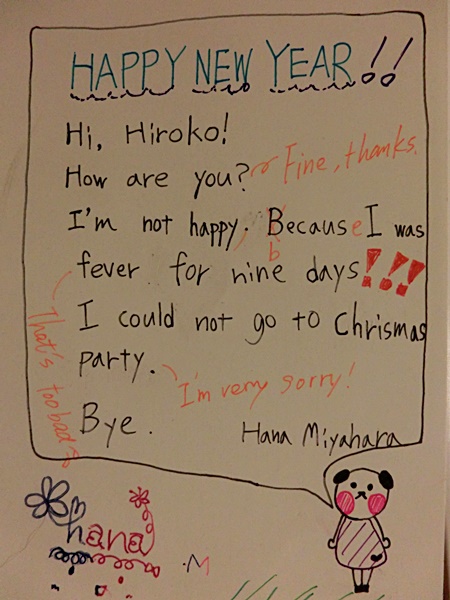 HAPPY NEW YEAR!!
Hi, Hiroko!
How are you? Fine, thanks.
I'm not happy. Because I was
b
fever for nine days!!!
That's too bad
I could not go to Chrismas
party.
I'm very sorry!
Bye.
Hana Miyahara
hana
.M